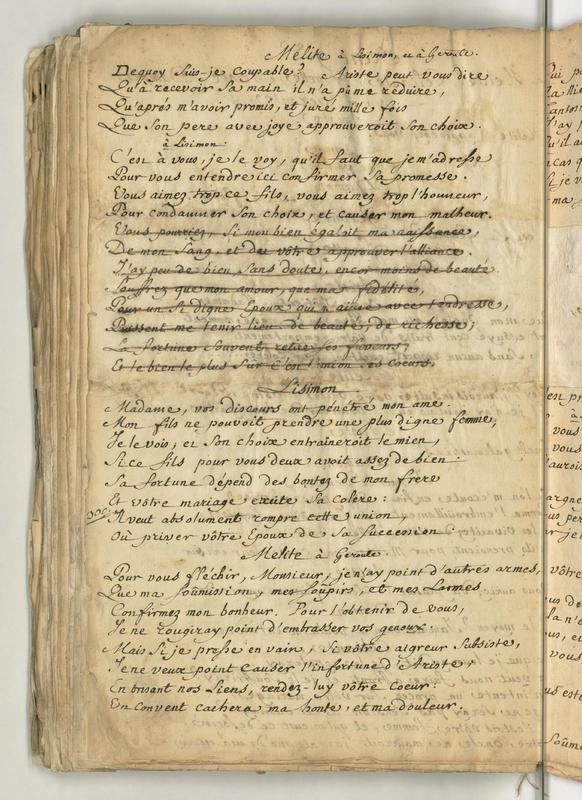 Melite à Lisimon, et à Geronte.
Dequoy suis-je coupable? Ariste peut vous dire
Qu'à recevoir sa main il n'a pû me réduire,
Qu'aprés m'avoir promis, et juré mille fois
Que son pere avec joye approuveroit son choix.
à Lisimon.
C'est à vous, je le voy, qu'il faut que je m'adresse
Pour vous entendre ici confirmer sa promesse.
Vous aimez trop ce fils, vous aimez trop l'honneur,
Pour condamner son choix, et causer mon malheur.
Vous pourriez, si mon bien égaloit ma naissance,
De mon sang, et du vôtre approuver l'alliance.
J'ay peu de bien sans doute, encor moins de beauté
Souffrez que mon amour, que ma fidelité,
Pour un si digne Epoux qui aime avec tendresse,
Puissent me tenir lieu de beauté, de richesse;
La fortune souvent retire ses faveurs;
Et le bien le plus sur c'est l'union des coeurs.
Lisimon
Madame, vos discours ont pénétré mon ame.
Mon fils ne pouvoit prendre une plus digne femme,
Je le vois; et son choix entraineroit le mien,
Si ce fils pour vous deux avoit assez de bien.
Sa fortune dépend des bontez de mon frere
Et vôtre mariage excite sa colere:
Il veut absolument rompre cette union,
Où priver vôtre Epoux de sa succession.
Melite à Geronte.
Pour vous fléchir, Monsieur, je n'ay point d'autres armes,
Que ma soûmission, mes soupirs, et mes larmes
Confirmez mon bonheur. Pour l'obtenir de vous,
Je ne rougiray point d'embrasser vos genoux.
Mais si je presse en vain, si vôtre aigreur subsiste,
Je ne veux point causer l'infortune d'Ariste;
En brisant nos liens, rendez-luy vôtre coeur:
Un Convent cachera ma honte, et ma douleur.